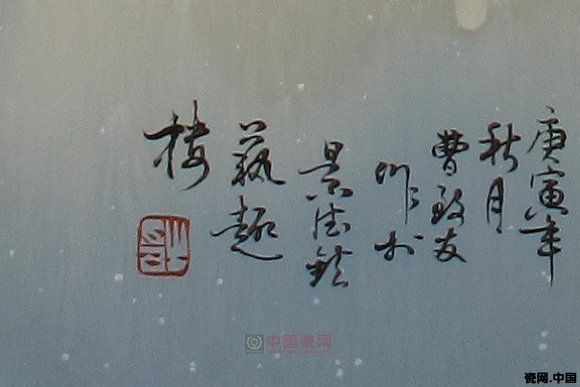 庚寅年
秋月
曹致友
作於
景德鎮
藝趣
樓
中国瓷网
瓷网.中国